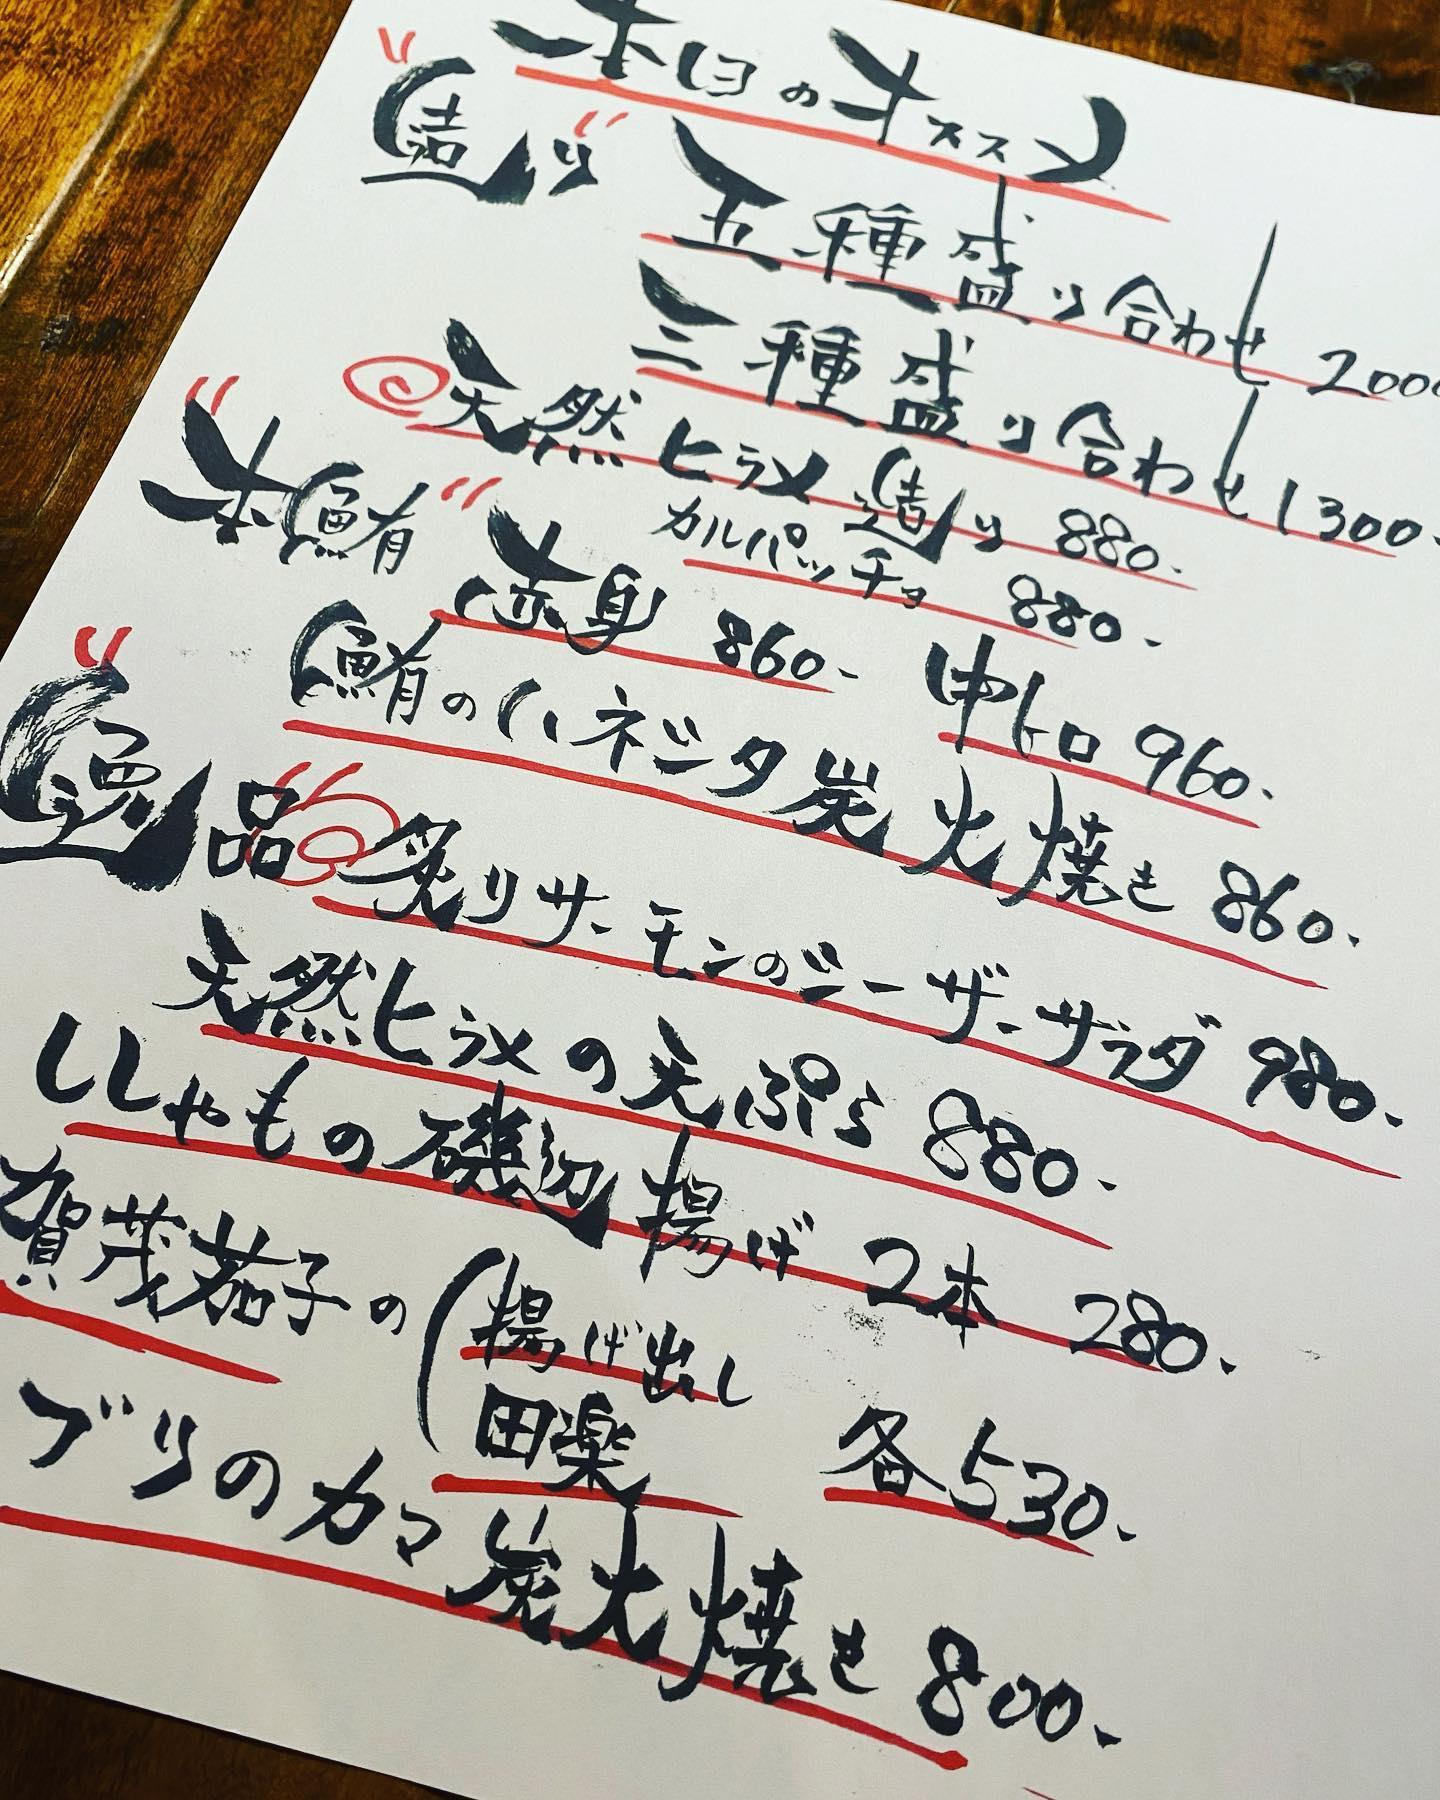 本日のオススメ
"造り"
五種盛り合わせ 2000
三種盛り合わせ 1300-
天然ヒラメ 造り 880-
カルパッチョ 880-
"本鮪"
赤身 860- 中トロ 960-
鮪のハネジタ炭火焼き 860-
"逸品"
炙りサーモンのシーザーサラダ 980-
天然ヒラメの天ぷら 880-
ししゃもの磯辺揚げ 2本 280-
賀茂茄子の(揚げ出し
田楽 各530-
ブリのカマ炭火焼き 800-